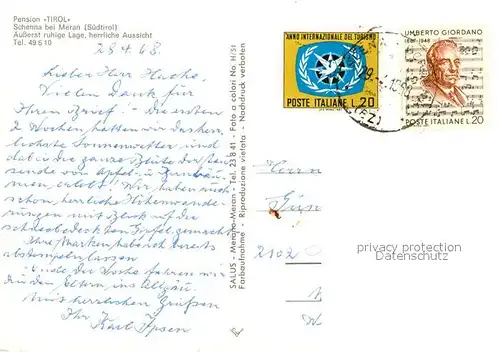 Pension «TIROL»
Schenna bei Meran (Südtirol)
Äußerst ruhige Lage, herrliche Aussicht
Tel. 49610
28.4.68.
Lieber Herr
Vielen Dank für
Ihren Brief! Die ersten
2 Wochen hatten wir das herr-
lichste Sonnenwetter und
dabei die ganze Blüte der Tau-
sende von Apfel- u. Birnbäu-
men erlebt! Wir haben auch
schon herrliche Höhenwande-
rungen mit Blick auf die
schneebedeckten Gipfel gemacht
Ihre Marken habe ich bereits
abstempeln lassen
Ende der Woche fahren wir
zu den Eltern ins Allgäu.
Mit herzlichen Grüßen
Ihr
Karl Ipsen
SALUS - Merano-Meran - Tel. 23841 - Foto a colori No. H/51
Farbaufnahme - Riproduzione vietata - Nachdruck verboten
ANNO INTERNAZIONALE DEL TURISMO
POSTE ITALIANE L.20
UMBERTO GIORDANO
1867-1948
POSTE ITALIANE L.20
(BZ)
Herrn
2102
privacy protection
Datenschutz